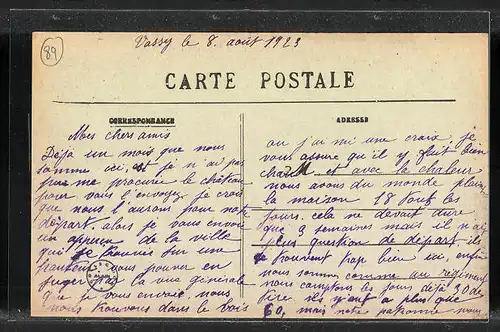 89
Vassy le 8. août 1923
CARTE POSTALE
CORRESPONDANCE
ADRESSE
Mes chers amis
Déjà un mois que nous
somme ici, et je n'ai pas
pu me procurer le château
pour vous l'envoyez je crois
que nous l'aurons pour notre
départ. alors je vous envoie
un apperçu de la ville
qui se trouve sur une
hauteur vous pouvez en
juger par la vue générale
que je vous envoie nous
nous trouvons dans le bois
ou j'ai mi une croix je
vous assure qu'il y fait bien
chaud et avec la chaleur
nous avons du monde plein
la maison 18 tout les
jours. cela ne devait duré
que 3 semaines mais il n'ai
plus question de départ ils
se trouvent trop bien ici, enfin
nous somme comme au régiment
nous comptons les jours déjà 30 de
tire ils y en t'a plus que
60, mais notre patronne nous